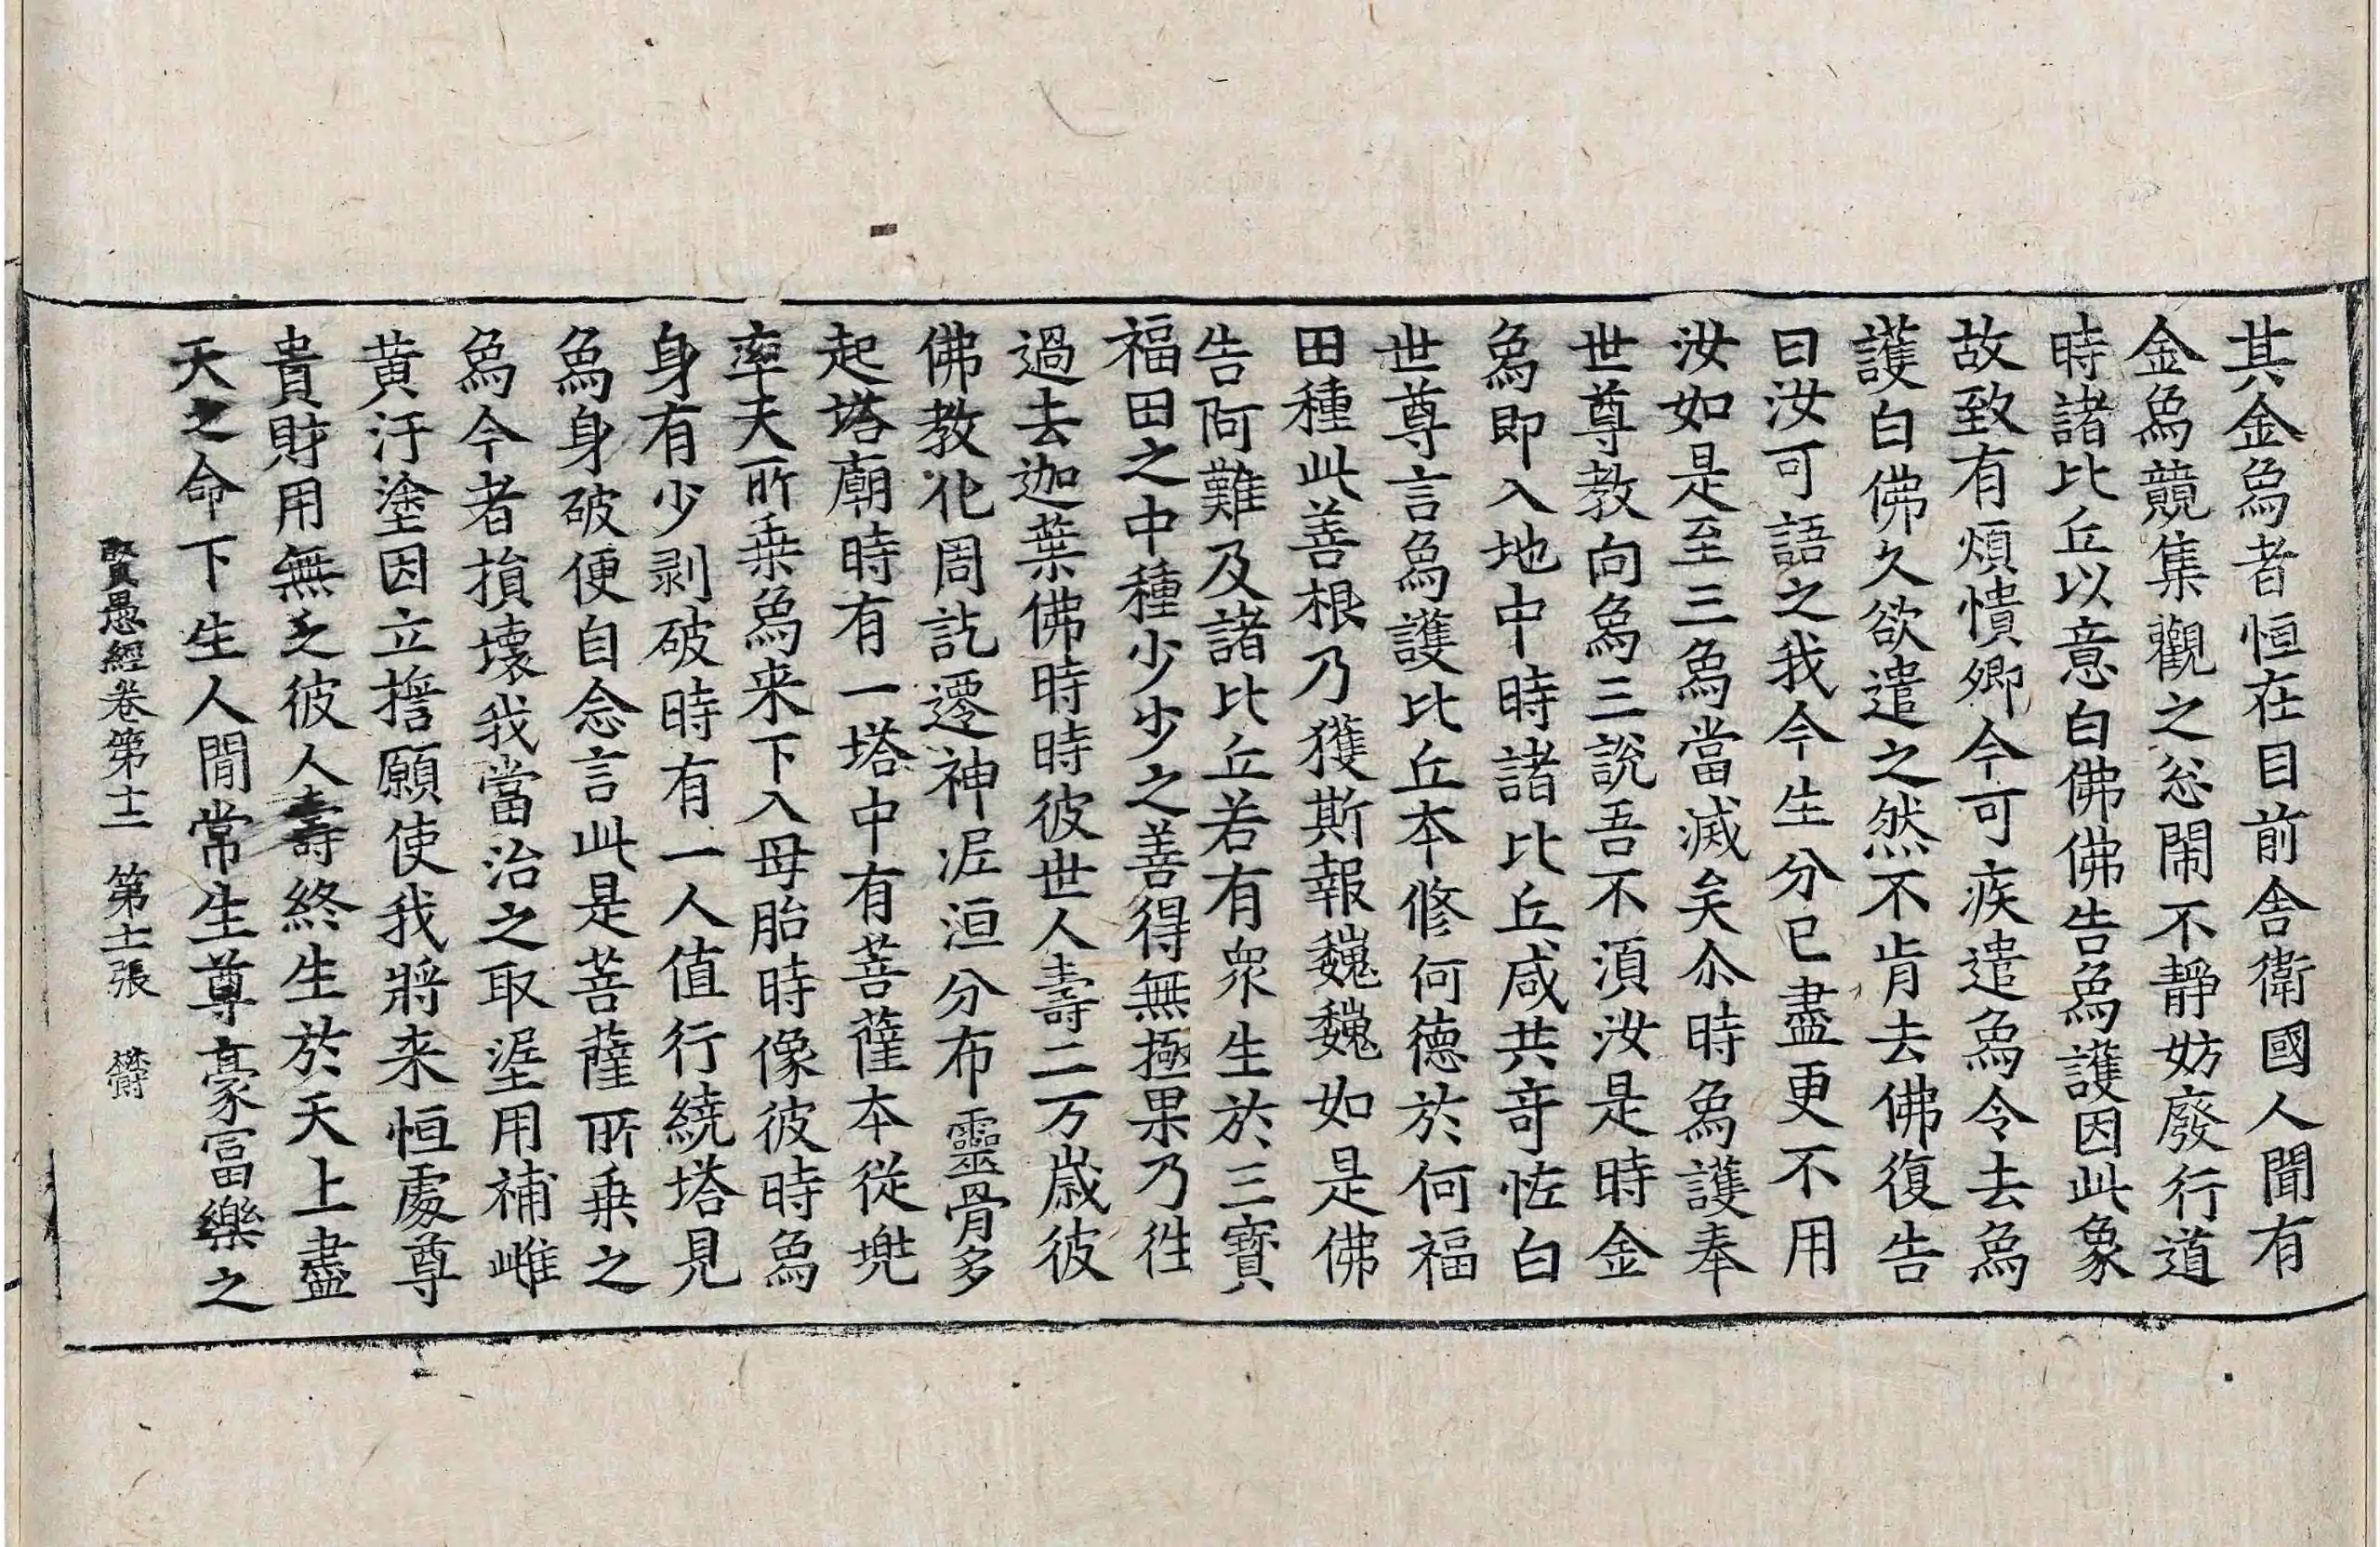 其金為者恒在目前舍衛國人聞有
金為競集觀之忩閙不靜妨廢行道
時諸比丘以意白佛佛告為護因此象
故致有煩憒卿今可疾遣為令去為
護白佛久欲遣之然不肯去佛復告
曰汝可語之我今生分已盡更不用
汝如是至三為當滅矣尒時為護奉
世尊教向為三說吾不湏汝是時金
為即入地中時諸比丘咸共竒恠白
世尊言為護比丘本修何德於何福
田種此善根乃獲斯報巍巍如是佛
告阿難及諸比丘若有衆生於三寶
福田之中種少少之善得無極果乃徃
過去迦葉佛時時彼世人壽二万歲彼
佛教化周訖遷神泥洹分布靈骨多
起塔廟時有一塔中有菩薩本從兠
率天所乗為来下入母胎時像彼時為
身有少剥破時有一人值行繞塔見
為身破便自念言此是菩薩所乗之
為今者損壞我當治之取埿用補雌
黄汙塗因立擔願使我將来恒處尊
貴財用無乏彼人壽終生於天上盡
天之命下生人閒常生尊豪冨樂之
賢愚經卷第十二 第十二張 欝